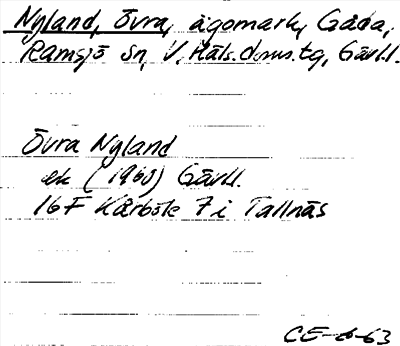 Nyland, Övra, ägomark, Gåda,
Ramsjö sn, V. Häls. doms. tg, Gävl.l.
Övra Nyland
ek (1960) Gävl.l.
16F Kårböle 7i Tallnäs
CE-6-63